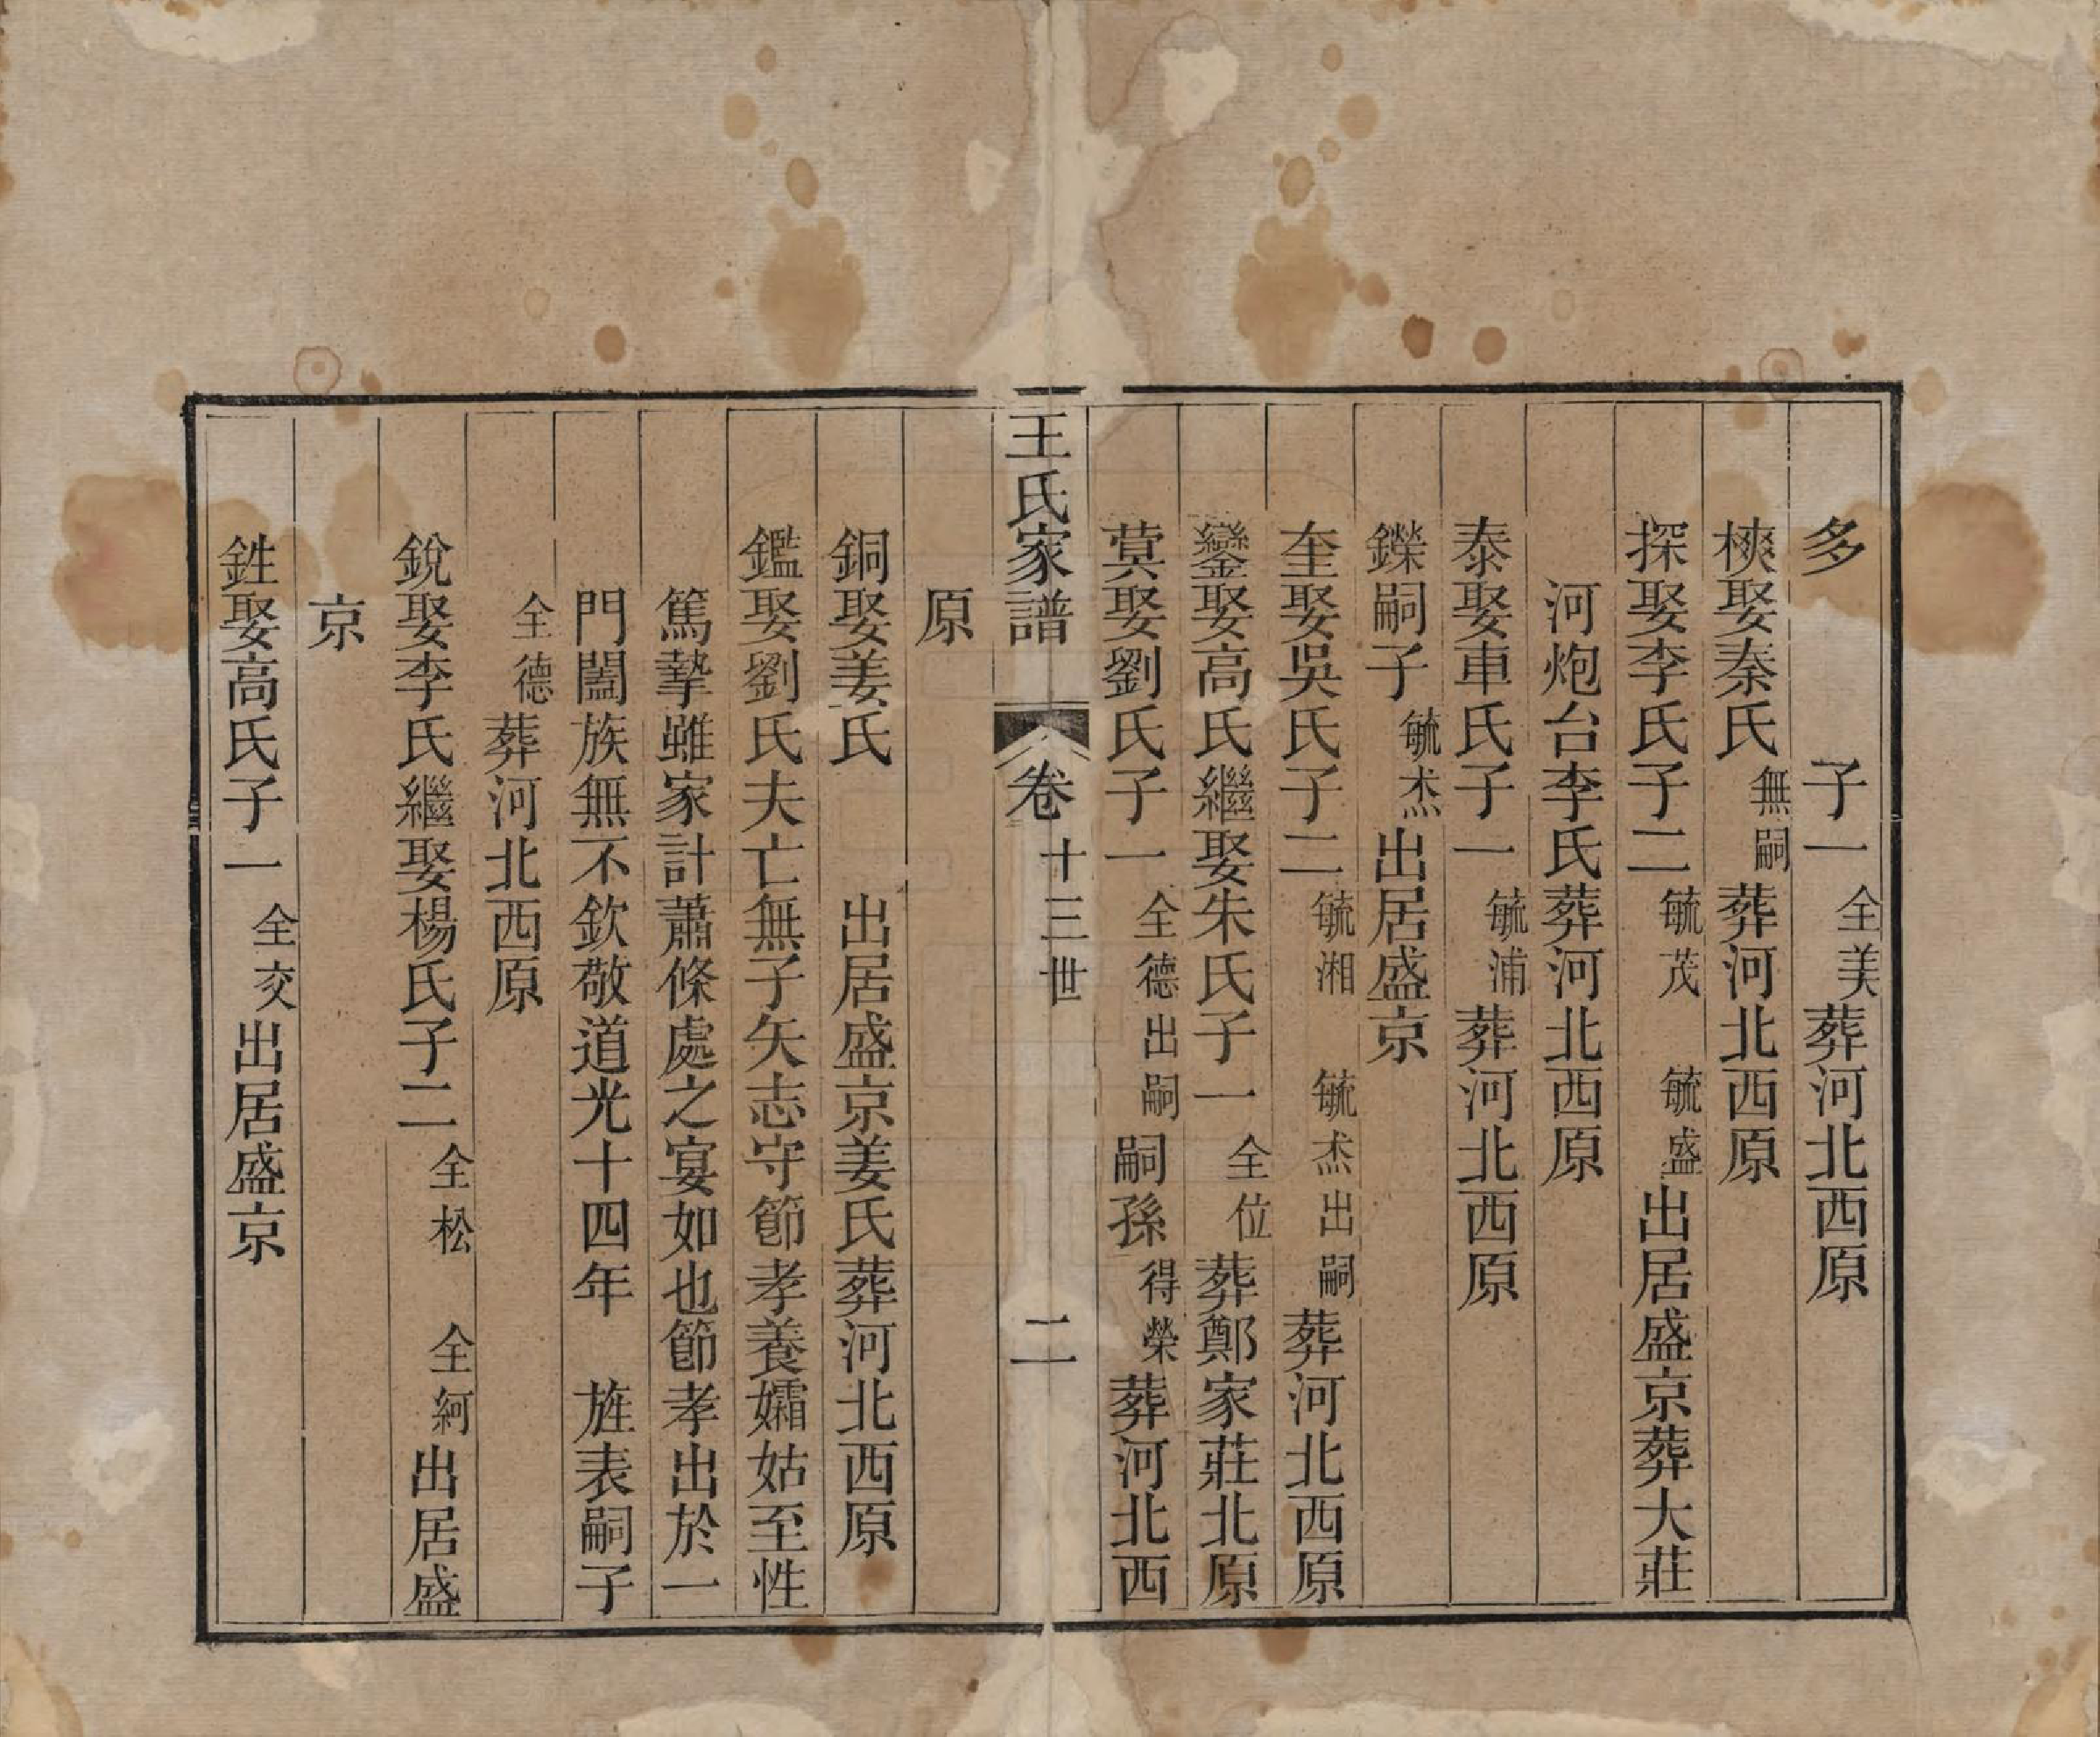 多　　　子一全美葬河北西原
樉娶秦氏無嗣葬河北西原
探娶李氏子二毓茂　毓盛出居盛京葬大莊
河炮台李氏葬河北西原
泰娶車氏子一毓浦葬河北西原
鑅嗣子毓杰出居盛京
奎娶吳氏子二毓湘　毓杰出嗣葬河北西原
鑾娶高氏繼娶朱氏子一全位葬鄭家莊北原
蓂娶劉氏子一全德出嗣嗣孫得榮葬河北西
王氏家譜　卷　十三世　二
原
銅娶姜氏　　出居盛京姜氏葬河北西原
鑑娶劉氏夫亡無子矢志守節孝養孀姑至性
篤摯雖家計蕭條處之宴如也節孝出於一
門闔族無不欽敬道光十四年　旌表嗣子
全德葬河北西原
銳娶李氏繼娶楊氏子二全松　全絅出居盛
京
鉎娶高氏子一全交出居盛京